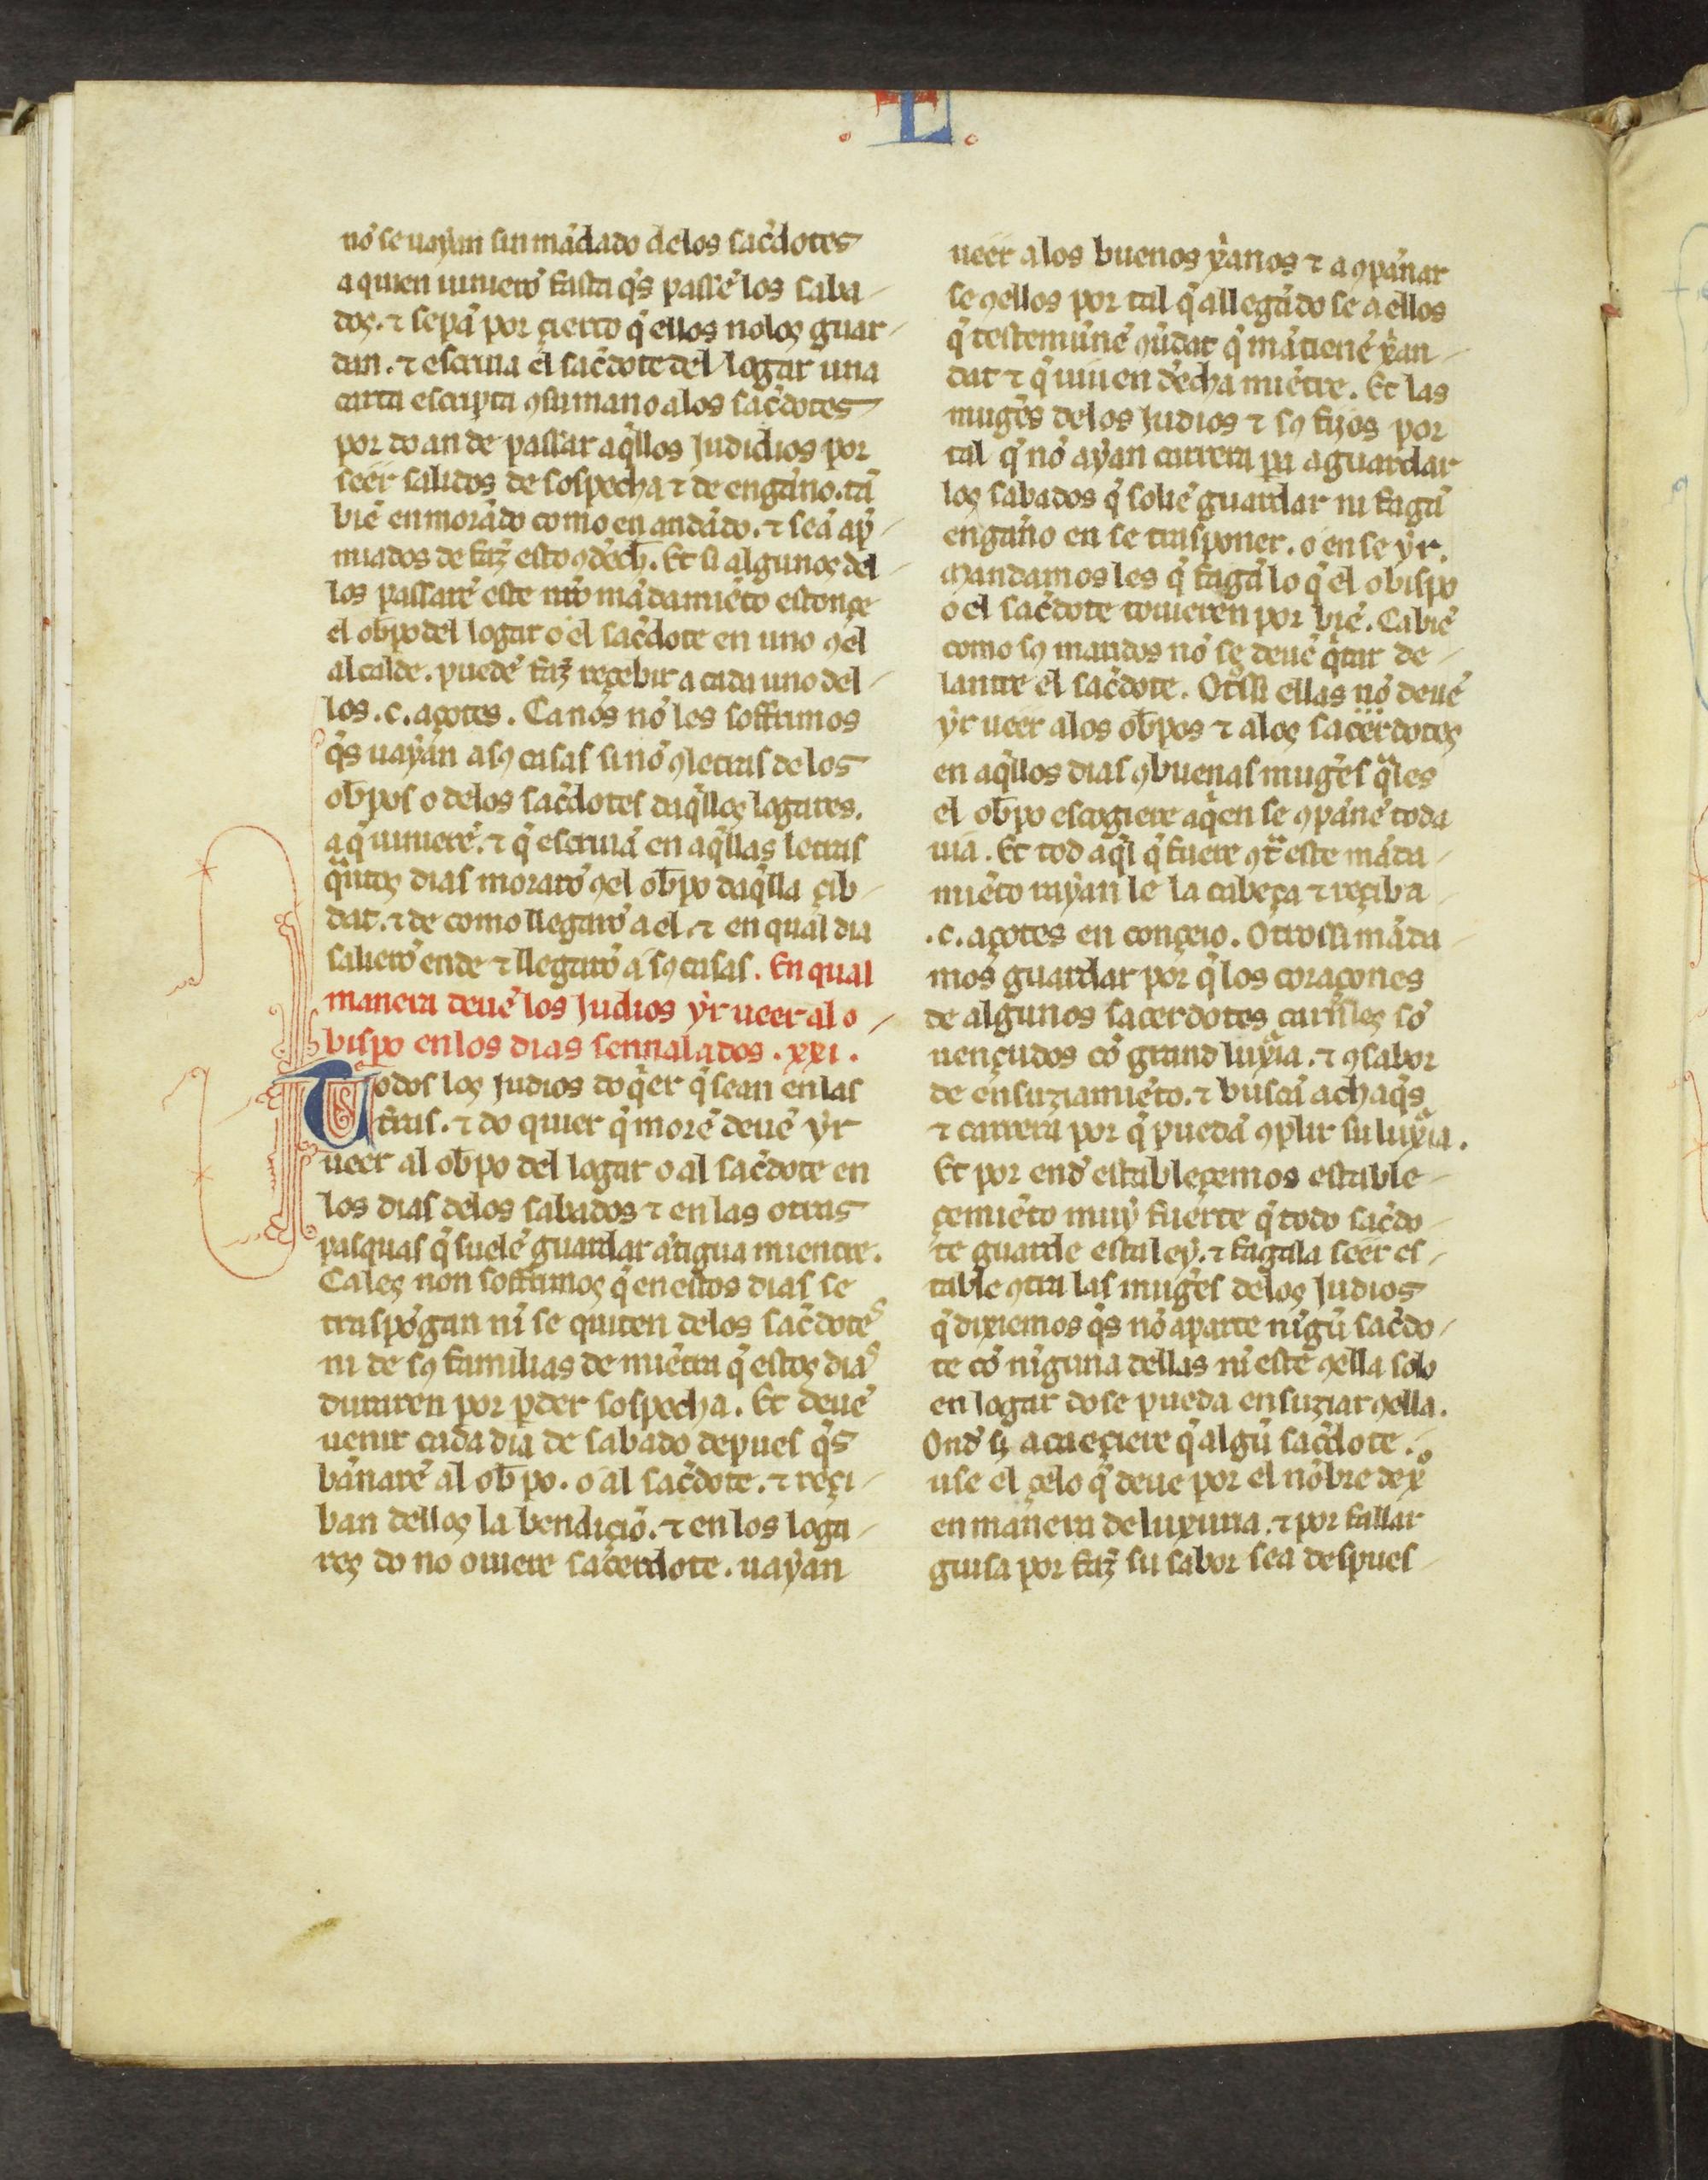 L
nõ se uayan sin mãdado delos sac̃dotes
a quien uiniero᷉ fasta q̃s passẽ los saba
dos. ⁊ sepã por çierto q̃ ellos nolos guar
dan. ⁊ escriua el sac̃dote del logar una
carta escripta ꝯsu mano alos sac̃dotes
por do an de passar aq̃llos Judidios por
seer salidos de sospecha ⁊ de engãno. tã
biẽ en morãdo como en andãdo. ⁊ seã ap̃
miados de faz̃ esto ꝯ dech̃. Et si algunos del
los passarẽ este nr̃o mãdamiẽto estonçe
el ob̃po del logar o el sac̃dote en uno ꝯel
alcalde. puedẽ faz̃ reçebir a cada uno del
los .c. açotes. Ca nos nõ les soffrimos
q̃s uayan a sꝯ casas sinõ ꝯletras de los
ob̃pos o delos sac̃dotes daq̃llos logares.
a q̃ uinierẽ. ⁊ q̃ escriuã en aq̃llas letras
q̃ntos dias morarõ ꝯel ob̃po daq̃lla çib
dat. ⁊ de como llegarõ a el. ⁊ en qual dia
salierõ ende ⁊ llegarõ a sꝯ casas. En qual
manera deuẽ los Judios yr ueer al o
bispo en los dias sennalados .xxi.
Todos los Judios do q̃er q̃ sean en las
t̃ras. ⁊ do quier q̃ morẽ deuẽ yr
ueer al ob̃po del logar o al sac̃dote en
los dias delos sabados ⁊ en las otras
pasquas q̃ suelẽ guardar ãtigua mientre.
Ca les non soffrimos q̃ en estos dias se
traspõgan nĩ se quiten delos sac̃dotes
ni de sꝯ familias de miẽtra q̃ estos dias
duraren por ꝑder sospecha. Et deuẽ
uenir cada dia de sabado depues q̃s
bãnarẽ al ob̃po. o al sac̃dote. ⁊ reçi
ban dellos la bendiçiõ. ⁊ en los loga
res do no ouiere saçerdote. uayan
ueer alos buenos xp̃anos ⁊ a ꝯpãnar
se ꝯellos por tal q̃ allegãdo se a ellos
q̃ testemũnẽ ꝯũdat q̃ mãtienẽ xp̃an
dat ⁊ q̃ uiuen dẽcha miẽtre. Et las
mugẽs delos Judios ⁊ sꝯ fijos por
tal q̃ nõ ayan carrera pa aguardar
los sabados q̃ soliẽ guardar ni fagã
engãno en se trasponer. o en se yr.
Mandamos les q̃ fagã lo q̃ el obispo
o el sac̃dote touieren por biẽ. Ca biẽ
como sꝯ maridos nõ se deuẽ q̃tar de
lantre el sac̃dote. Ot̃ssi ellas nõ deuẽ
yr ueer alos ob̃pos ⁊ alos saçerdotes
en aq̃llos dias ꝯ buenas mugẽs q̃les
el ob̃po escogiere aq̃en se ꝯpãnẽ toda
uia. Et tod aq̃l q̃ fuere ꝯt̃ este mãda
miẽto rayan le la cabeça ⁊ reçiba
.c. açotes en conçeio. Otrossi mãda
mos guardar por q̃ los coraçones
de algunos sacerdotes carñles sõ
uençudos cõ grand lux̃ia. ⁊ ꝯ sabor
de ensuziamiẽto. ⁊ buscã achaq̃s
⁊ carrera por q̃ puedã ꝯplir su lux̃ia.
Et por end̃ establecemos estable
çemiẽto muy fuerte q̃ todo sac̃do
te guarde esta ley. ⁊ fagala seer es
table ꝯtra las mugẽs delos Judios
q̃ dixiemos q̃s nõ aparte nĩgũ sac̃do
te cõ nĩguna dellas nĩ estẽ ꝯella solo
en logar do se pueda ensuziar ꝯella.
Ond̃ si acaeçiere q̃ algũ sac̃dote
use el çelo q̃ deue por el nõbre de xp̃o
en manera de luxuria. ⁊ por fallar
guisa por faz̃ su sabor sea despues